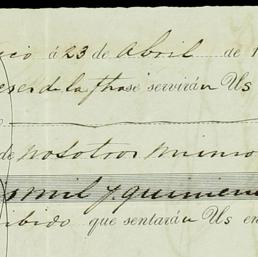 cio á 23 de Abril de 1
eses de la fha se servirán Us
de nosotros mismo
s mil y quinien
ibido que sentarán Us en